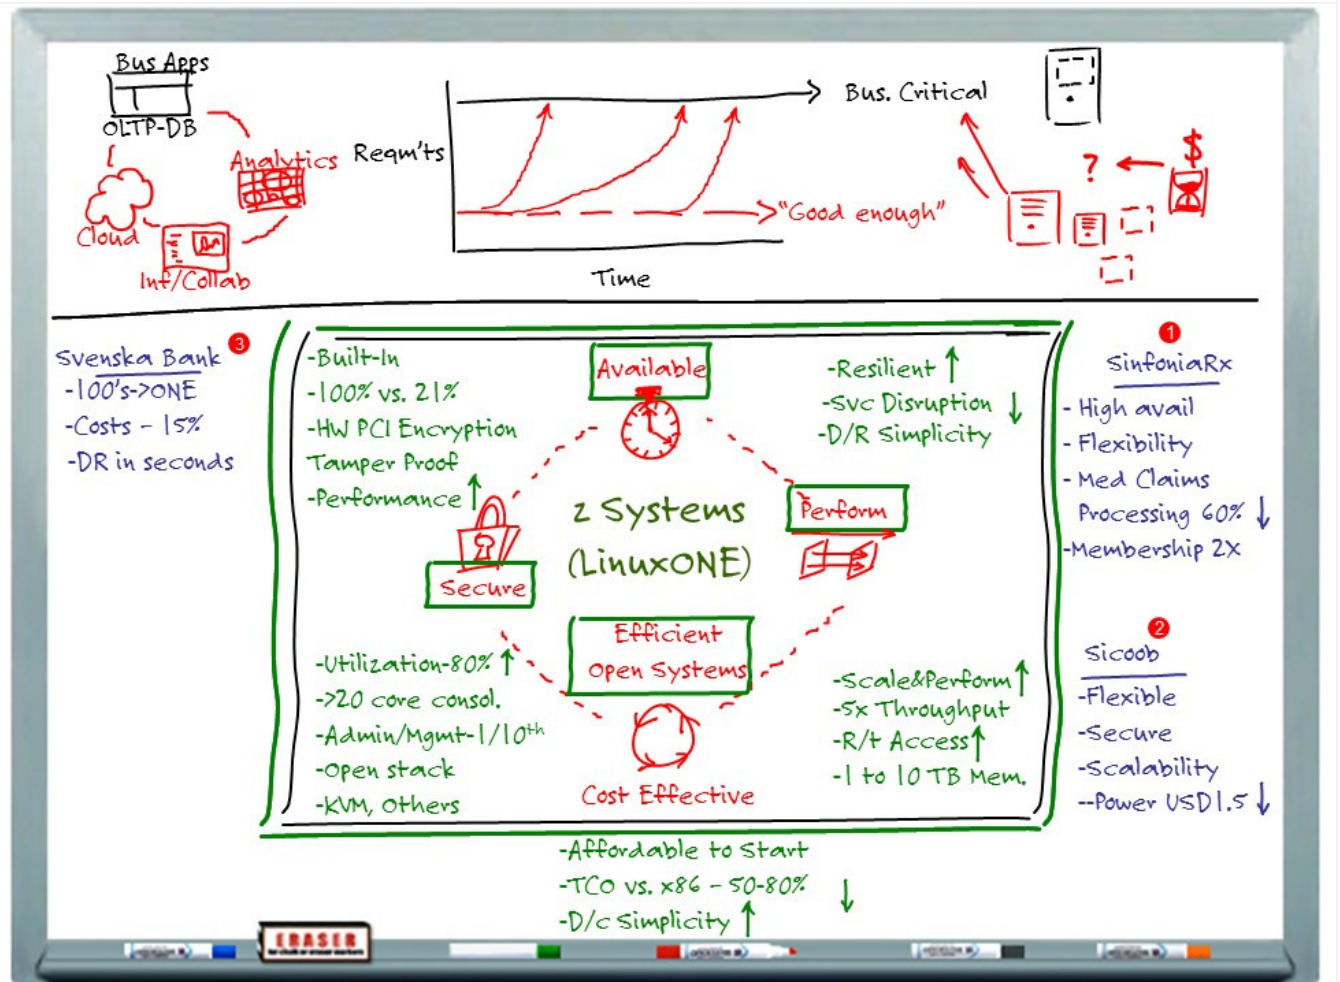 Bus Apps
OLTP-DB
Analytics
Cloud
Inf/Collab
Reqm'ts
Time
Bus. Critical
"Good enough"
?
$
Svenska Bank
3
-100's->ONE
-Costs - 15%
-DR in seconds
-Built-In
-100% vs. 21%
-HW PCI Encryption
Tamper Proof
-Performance
Available
-Resilient
-Svc Disruption
-D/R Simplicity
z Systems
(LinuxONE)
Perform
Secure
Efficient
Open Systems
Cost Effective
-Utilization-80%
->20 core consol.
-Admin/Mgmt-1/10th
-Open stack
-KVM, Others
-Scale&Perform
-5x Throughput
-R/t Access
-1 to 10 TB Mem.
-Affordable to Start
-TCO vs. x86 - 50-80%
-D/c Simplicity
1
SinfoniaRx
- High avail
- Flexibility
- Med Claims
Processing 60%
-Membership 2X
2
Sicoob
-Flexible
-Secure
-Scalability
--Power USD1.5
ERASER